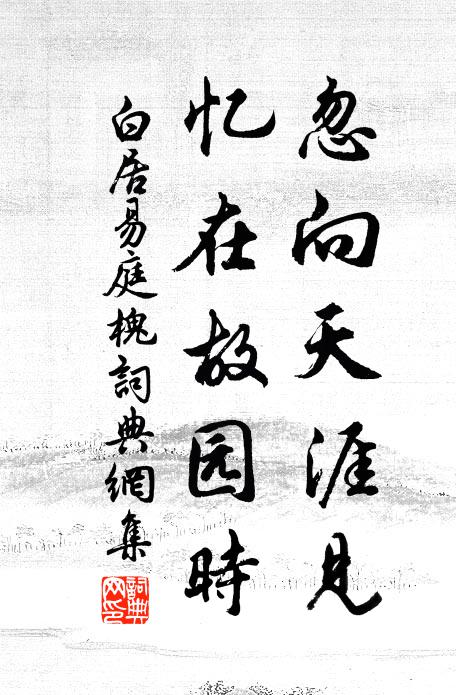 忽向天涯见
忆在故园時
白居易庭槐詞典網集
詞典网印